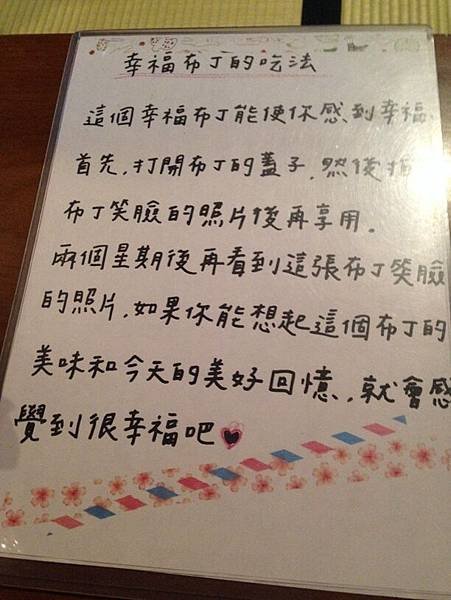 幸福布丁的吃法
這個幸福布丁能使你感到幸福。
首先,打開布丁的蓋子,然後拍
布丁笑臉的照片後再享用。
兩個星期後再看到這張布丁笑臉
的照片,如果你能想起這個布丁的
美味和今天的美好回憶,就會感
覺到很幸福吧